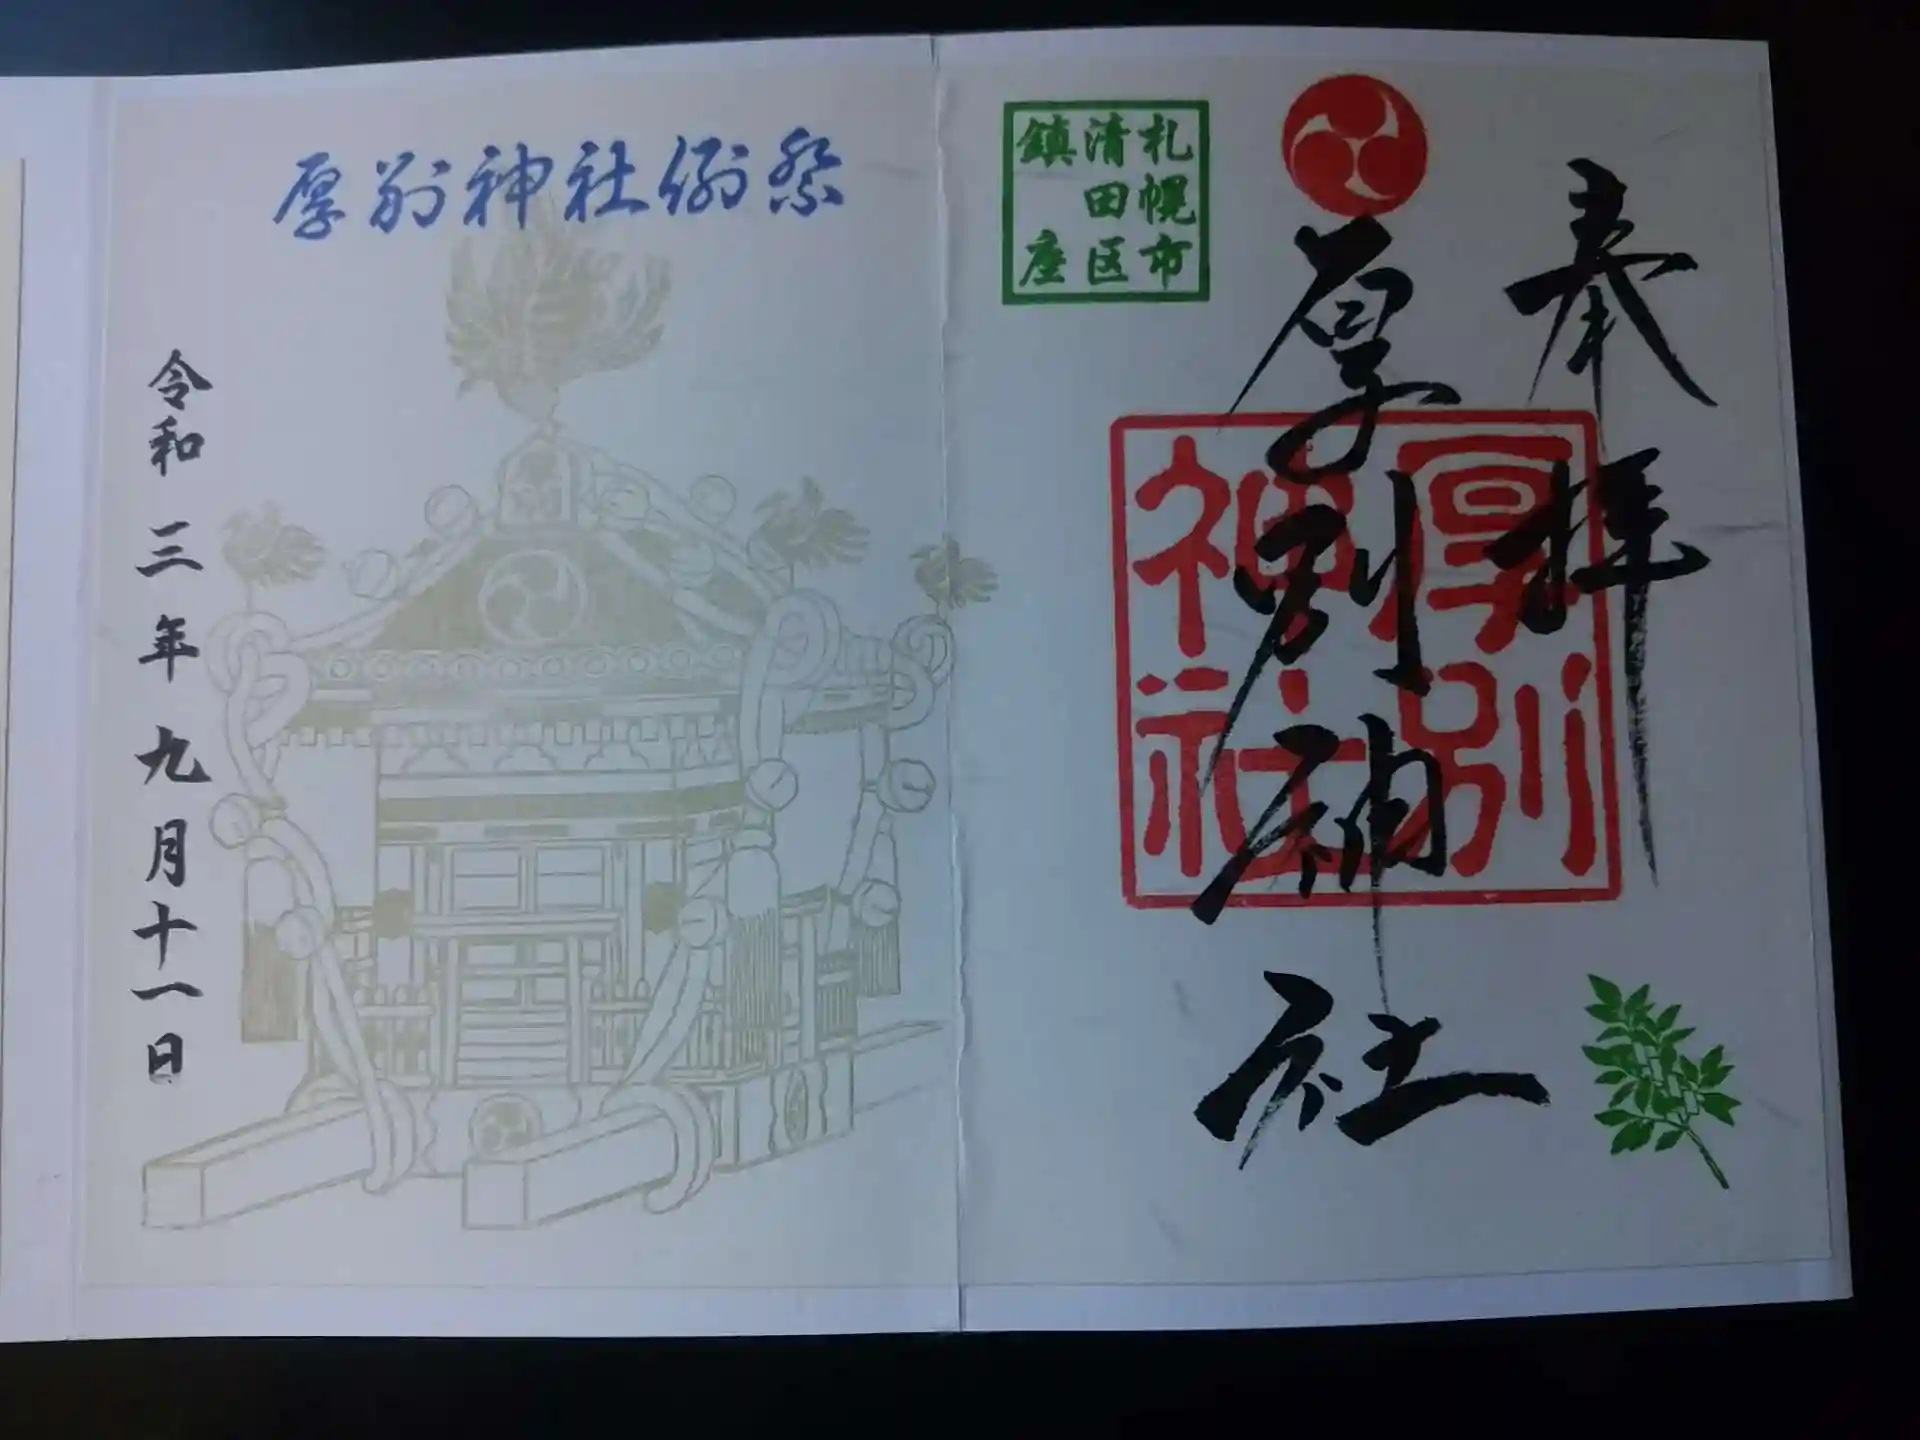 奉拝
厚別神社
厚別
神社
札幌市
清田区
鎮座
厚別神社例祭
令和三年九月十一日